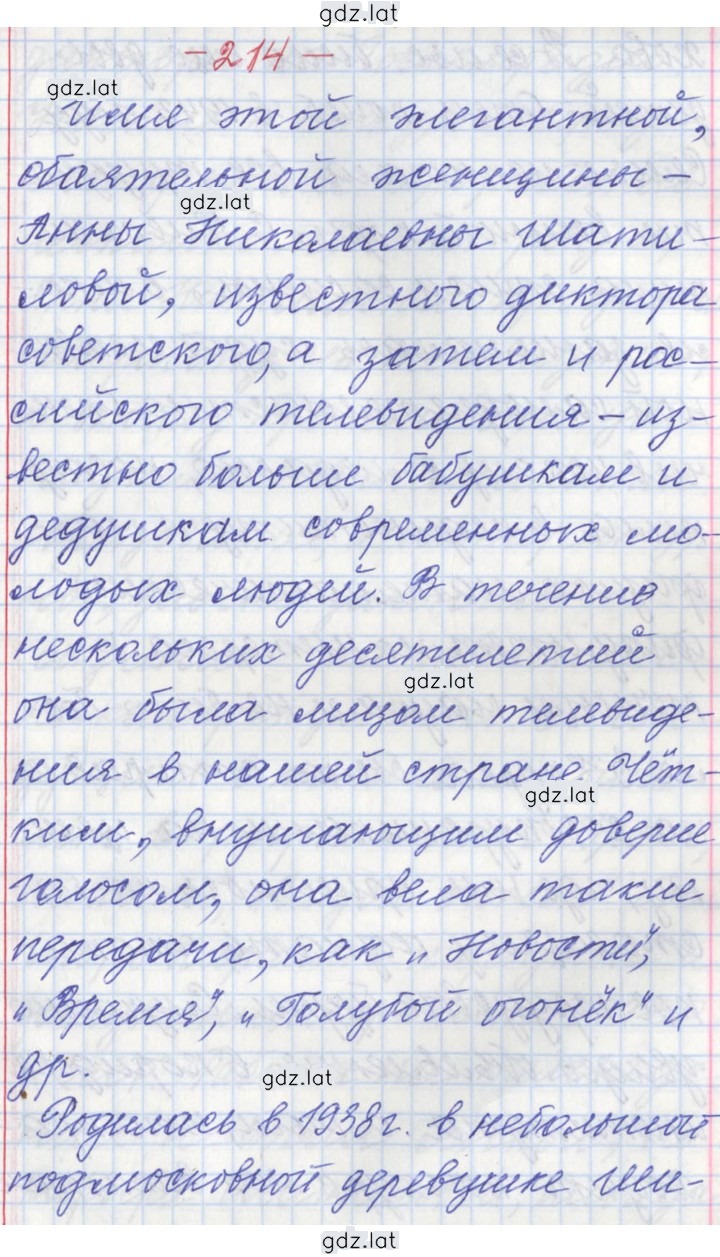 gdz.lat
-214-
gdz.lat
Имя этой элегантной,
обаятельной женщины -
gdz.lat
Анны Николаевны Шати-
ловой, известного диктора
советского, а затем и рос-
сийского телевидения - из-
вестно больше бабушкам и
дедушкам современных мо-
лодых людей. В течение
нескольких десятилетий
gdz.lat
она была лицом телевиде-
ния в нашей стране. Чёт-
gdz.lat
ким, внушающим доверие
голосом, она вела такие
передачи, как "Новости",
"Время", "Голубой огонёк" и
др.
gdz.lat
Родилась в 1938 г. в небольшой
подмосковной деревушке Ши-
gdz.lat